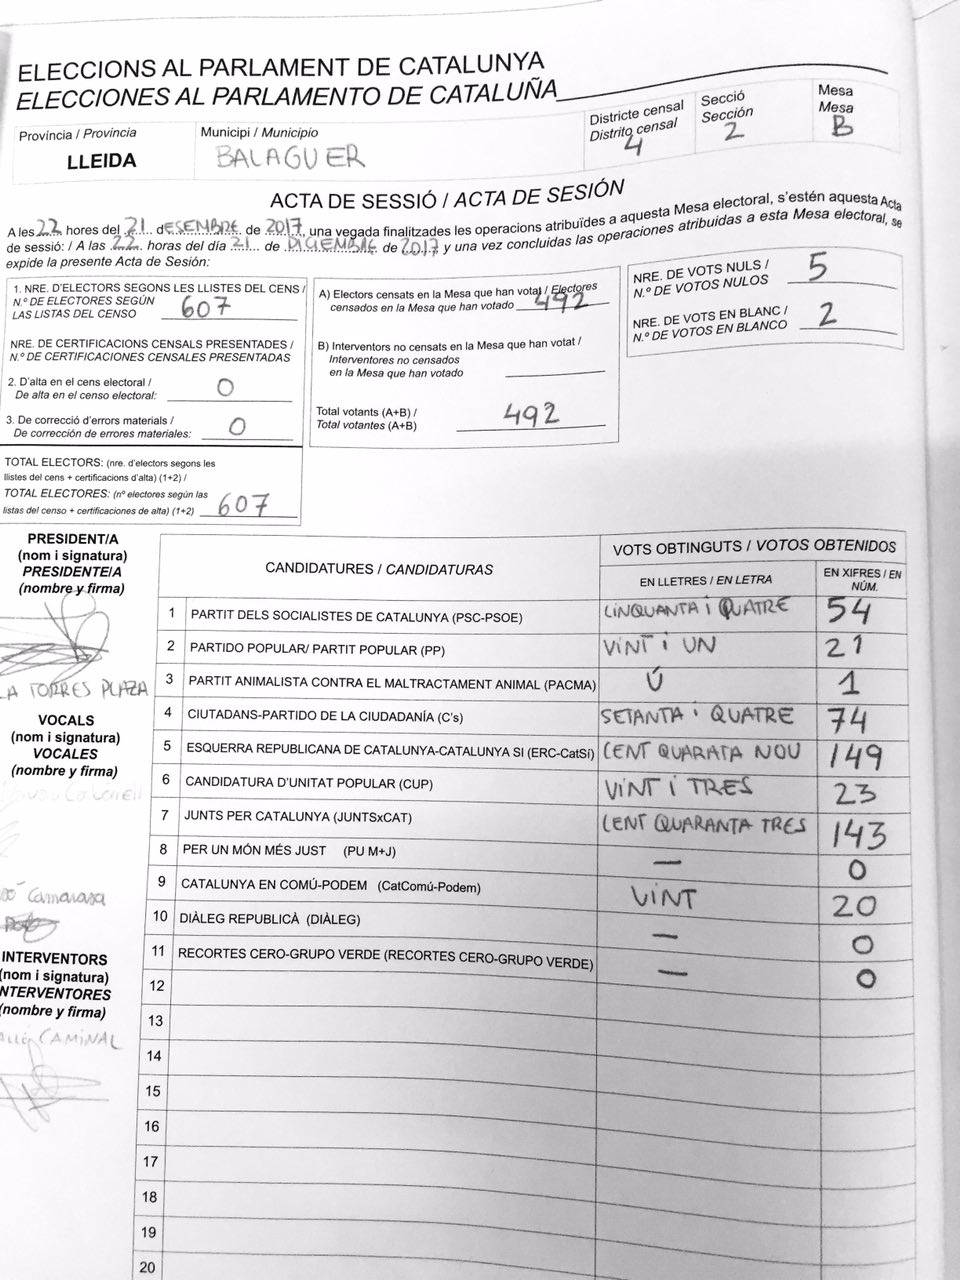 ELECCIONS AL PARLAMENT DE CATALUNYA
ELECCIONES AL PARLAMENTO DE CATALUÑA
Província / Provincia
LLEIDA
Municipi / Municipio
BALAGUER
Districte censal
Distrito censal
4
Secció
Sección
2
Mesa
Mesa
B
ACTA DE SESSIÓ / ACTA DE SESIÓN
A les 22 hores del 21 DESEMBRE de 2017, una vegada finalitzades les operacions atribuïdes a aquesta Mesa electoral, s'estén aquesta Acta
de sessió: / A las 22 horas del día 21 de DICIEMBRE de 2017 y una vez concluidas las operaciones atribuidas a esta Mesa electoral, se
expide la presente Acta de Sesión:
1. NRE. D'ELECTORS SEGONS LES LLISTES DEL CENS /
N.º DE ELECTORES SEGÚN
LAS LISTAS DEL CENSO 607
NRE. DE CERTIFICACIONS CENSALS PRESENTADES /
N.º DE CERTIFICACIONES CENSALES PRESENTADAS
2. D'alta en el cens electoral /
De alta en el censo electoral: 0
3. De correcció d'errors materials /
De corrección de errores materiales: 0
TOTAL ELECTORS: (nre. d'electors segons les
llistes del cens + certificacions d'alta) (1+2) /
TOTAL ELECTORES: (nº electores según las
listas del censo + certificaciones de alta) (1+2) 607
A) Electors censats en la Mesa que han votat / Electores
censados en la Mesa que han votado 492
B) Interventors no censats en la Mesa que han votat /
Interventores no censados
en la Mesa que han votado
Total votants (A+B) /
Total votantes (A+B) 492
NRE. DE VOTS NULS /
N.º DE VOTOS NULOS 5
NRE. DE VOTS EN BLANC /
N.º DE VOTOS EN BLANCO 2
PRESIDENT/A
(nom i signatura)
PRESIDENTE/A
(nombre y firma)
LA TORRES PLAZA
VOCALS
(nom i signatura)
VOCALES
(nombre y firma)
Camarasa
INTERVENTORS
(nom i signatura)
INTERVENTORES
(nombre y firma)
CAMINAL
CANDIDATURES / CANDIDATURAS
VOTS OBTINGUTS / VOTOS OBTENIDOS
EN LLETRES / EN LETRA
EN XIFRES / EN NÚM.
1 PARTIT DELS SOCIALISTES DE CATALUNYA (PSC-PSOE) CINQUANTA i QUATRE 54
2 PARTIDO POPULAR/ PARTIT POPULAR (PP) VINT i UN 21
3 PARTIT ANIMALISTA CONTRA EL MALTRACTAMENT ANIMAL (PACMA) Ú 1
4 CIUTADANS-PARTIDO DE LA CIUDADANÍA (C's) SETANTA i QUATRE 74
5 ESQUERRA REPUBLICANA DE CATALUNYA-CATALUNYA SI (ERC-CatSí) CENT QUARATA NOU 149
6 CANDIDATURA D'UNITAT POPULAR (CUP) VINT I TRES 23
7 JUNTS PER CATALUNYA (JUNTSxCAT) CENT QUARANTA TRES 143
8 PER UN MÓN MÉS JUST (PU M+J) — 0
9 CATALUNYA EN COMÚ-PODEM (CatComú-Podem) VINT 20
10 DIÀLEG REPUBLICÀ (DIÀLEG) — 0
11 RECORTES CERO-GRUPO VERDE (RECORTES CERO-GRUPO VERDE) — 0
12
13
14
15
16
17
18
19
20